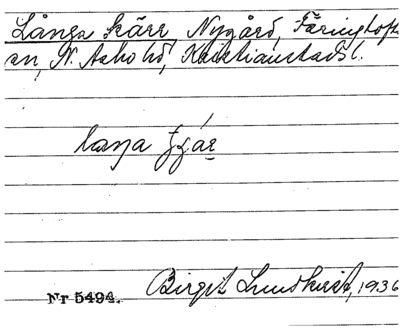 Långa kärr, Nygård, Färingtofta
sn, N. Åsbo hd, Kristianstads l.
laŋa
Nr 5494. Birgit Lundkvist, 1936